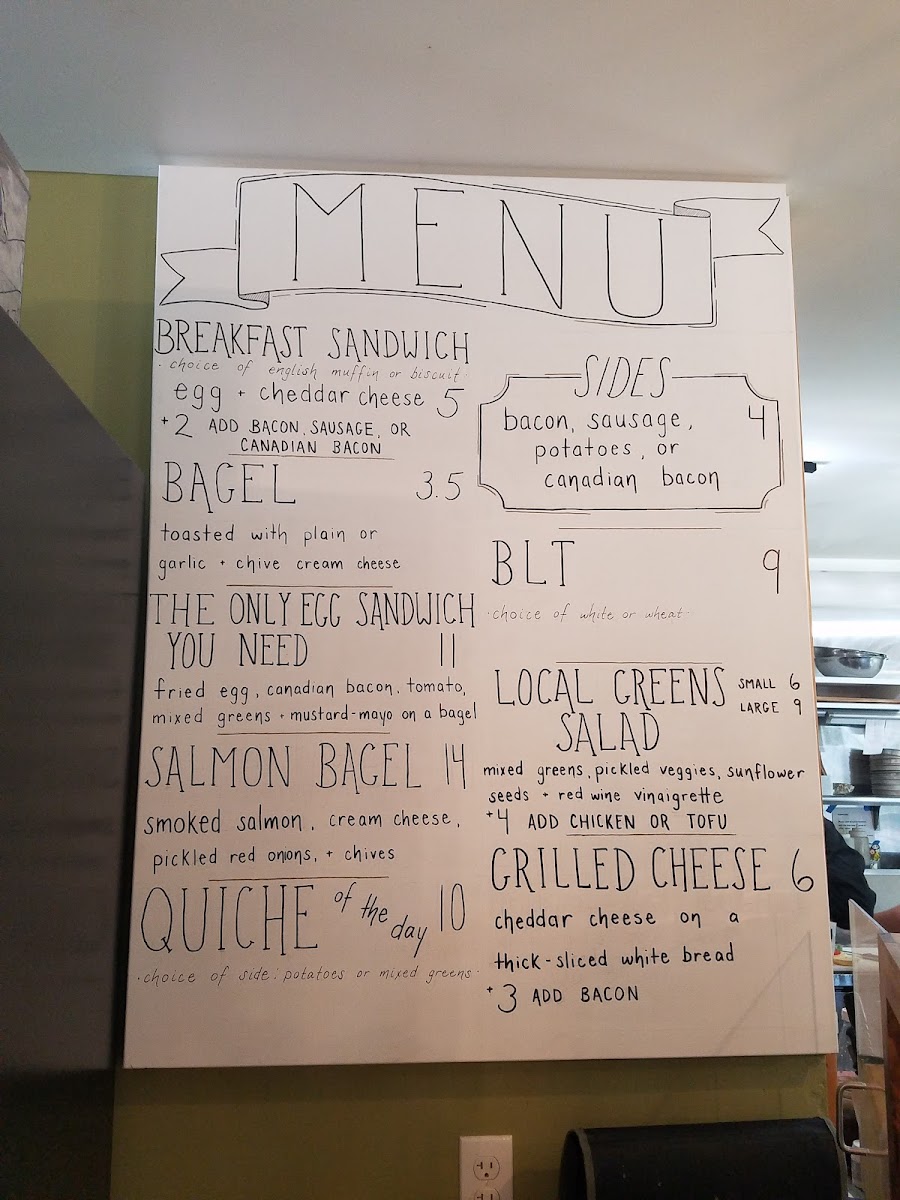 MENU
BREAKFAST SANDWICH
· choice of english muffin or biscuit ·
egg + cheddar cheese 5
+2 ADD BACON, SAUSAGE, OR
CANADIAN BACON
BAGEL 3.5
toasted with plain or
garlic + chive cream cheese
THE ONLY EGG SANDWICH
YOU NEED 11
fried egg, canadian bacon, tomato,
mixed greens + mustard-mayo on a bagel
SALMON BAGEL 14
smoked salmon, cream cheese,
pickled red onions, + chives
QUICHE of the day 10
· choice of side: potatoes or mixed greens ·
SIDES
bacon, sausage, 4
potatoes, or
canadian bacon
BLT 9
· choice of white or wheat ·
LOCAL GREENS SMALL 6
LARGE 9
SALAD
mixed greens, pickled veggies, sunflower
seeds + red wine vinaigrette
+4 ADD CHICKEN OR TOFU
GRILLED CHEESE 6
cheddar cheese on a
thick-sliced white bread
+3 ADD BACON